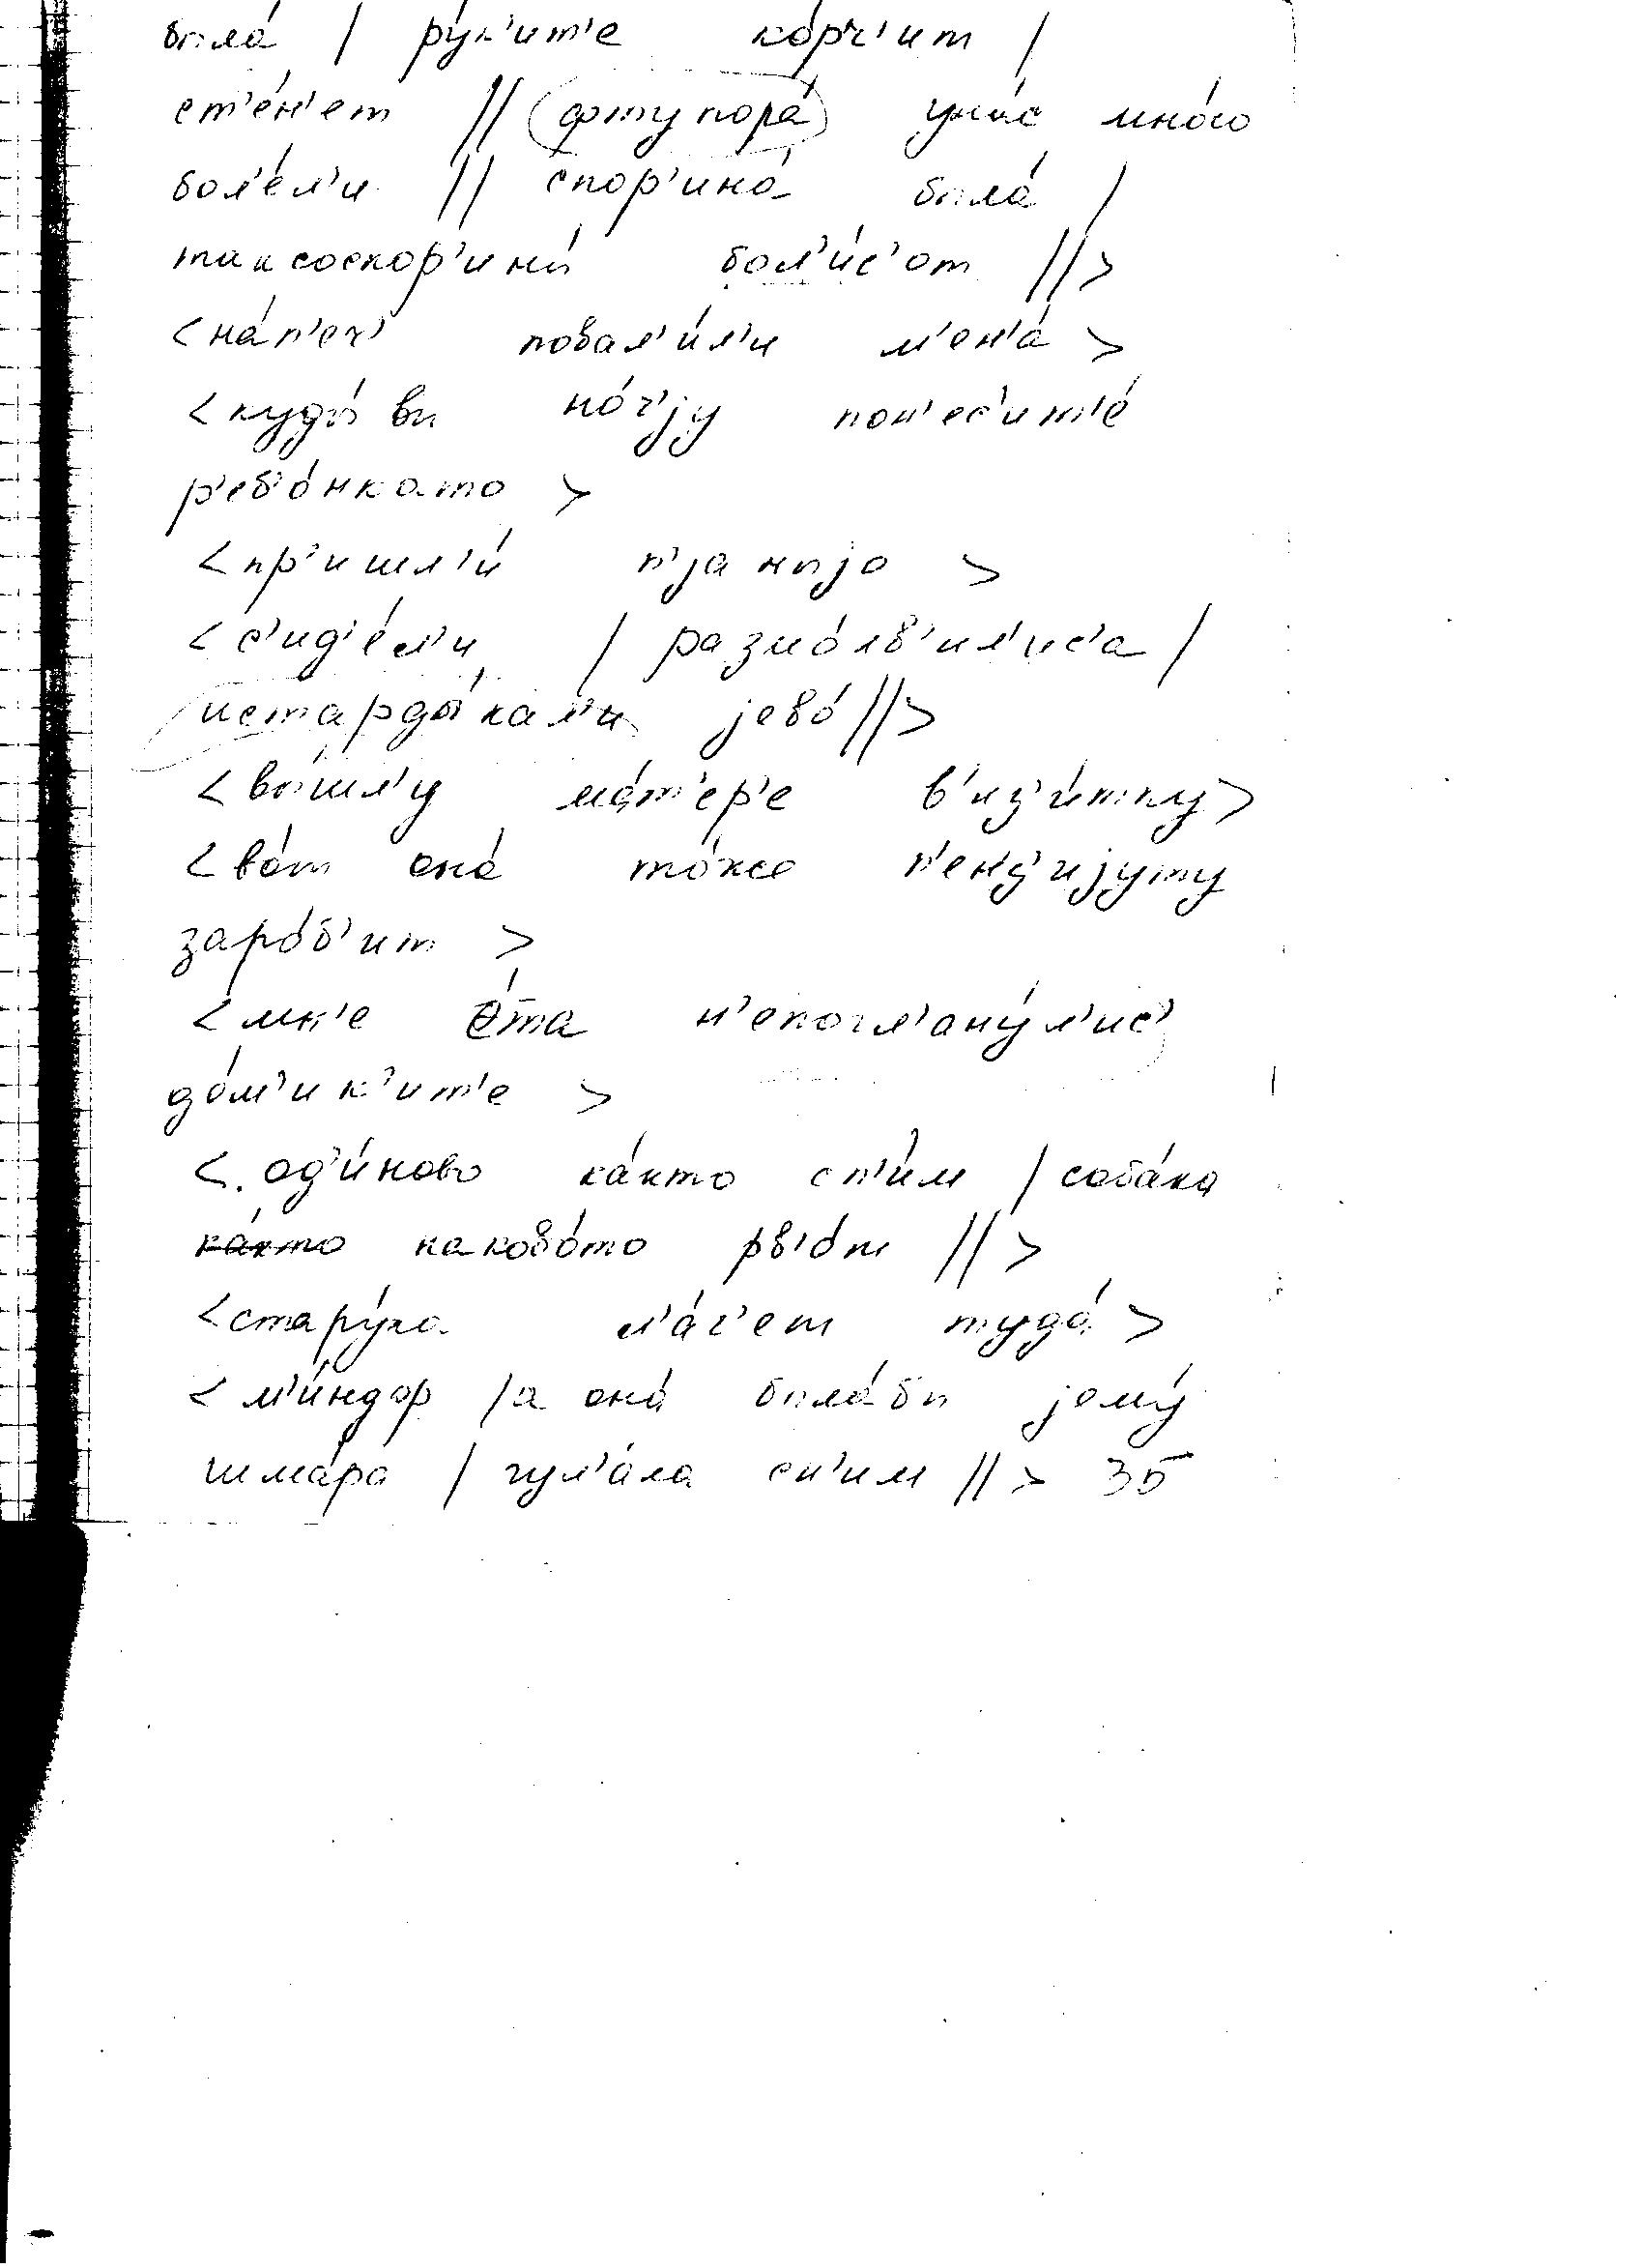 была́ / ру́к'ит'е ко́рч'ит /
ст'е́н'ет // (фтупора́) уна́с мно́го
бол'е́л'и // спор'ина́ была́ /
таксоспор'ины́ бол'и́с'от //>
<на́п'еч' повал'и́л'и м'ен'а́>
<куды́ вы но́ч'jу пон'ес'ит'е́
р'еб'о́нкато>
<пр'ишл'и́ п'jаныjо>
<с'ид'е́л'и / размо́лв'ил'ис'а /
истарды́кал'и jево́ //>
<вы́шл'у ма́т'ер'е в'из'и́тку>
<во́т она́ то́жо п'е́нз'иjуту
заро́б'ит>
<мн'е е́та н'епогл'ану́л'ис'
до́м'ик'ит'е>
<од'и́ново ка́кто сп'и́м / соба́ка
ка́кто каково́то рв'о́т //>
<стару́ха л'а́г'ет туда́>
<м'и́ндор / а она́ была́бы jому́
шма́ра / гул'а́ла сн'им //> 35